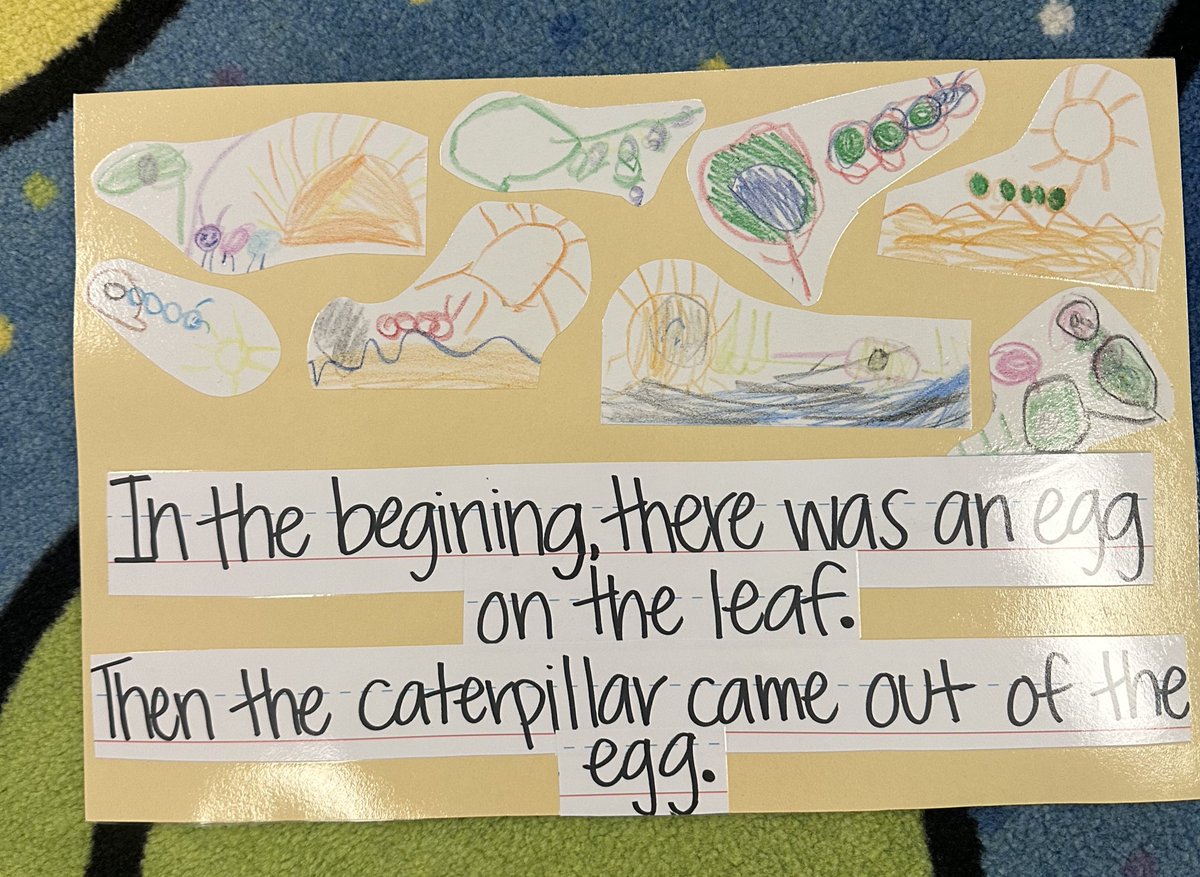 In the begining, there was an egg
on the leaf.
Then the caterpillar came out of the
egg.